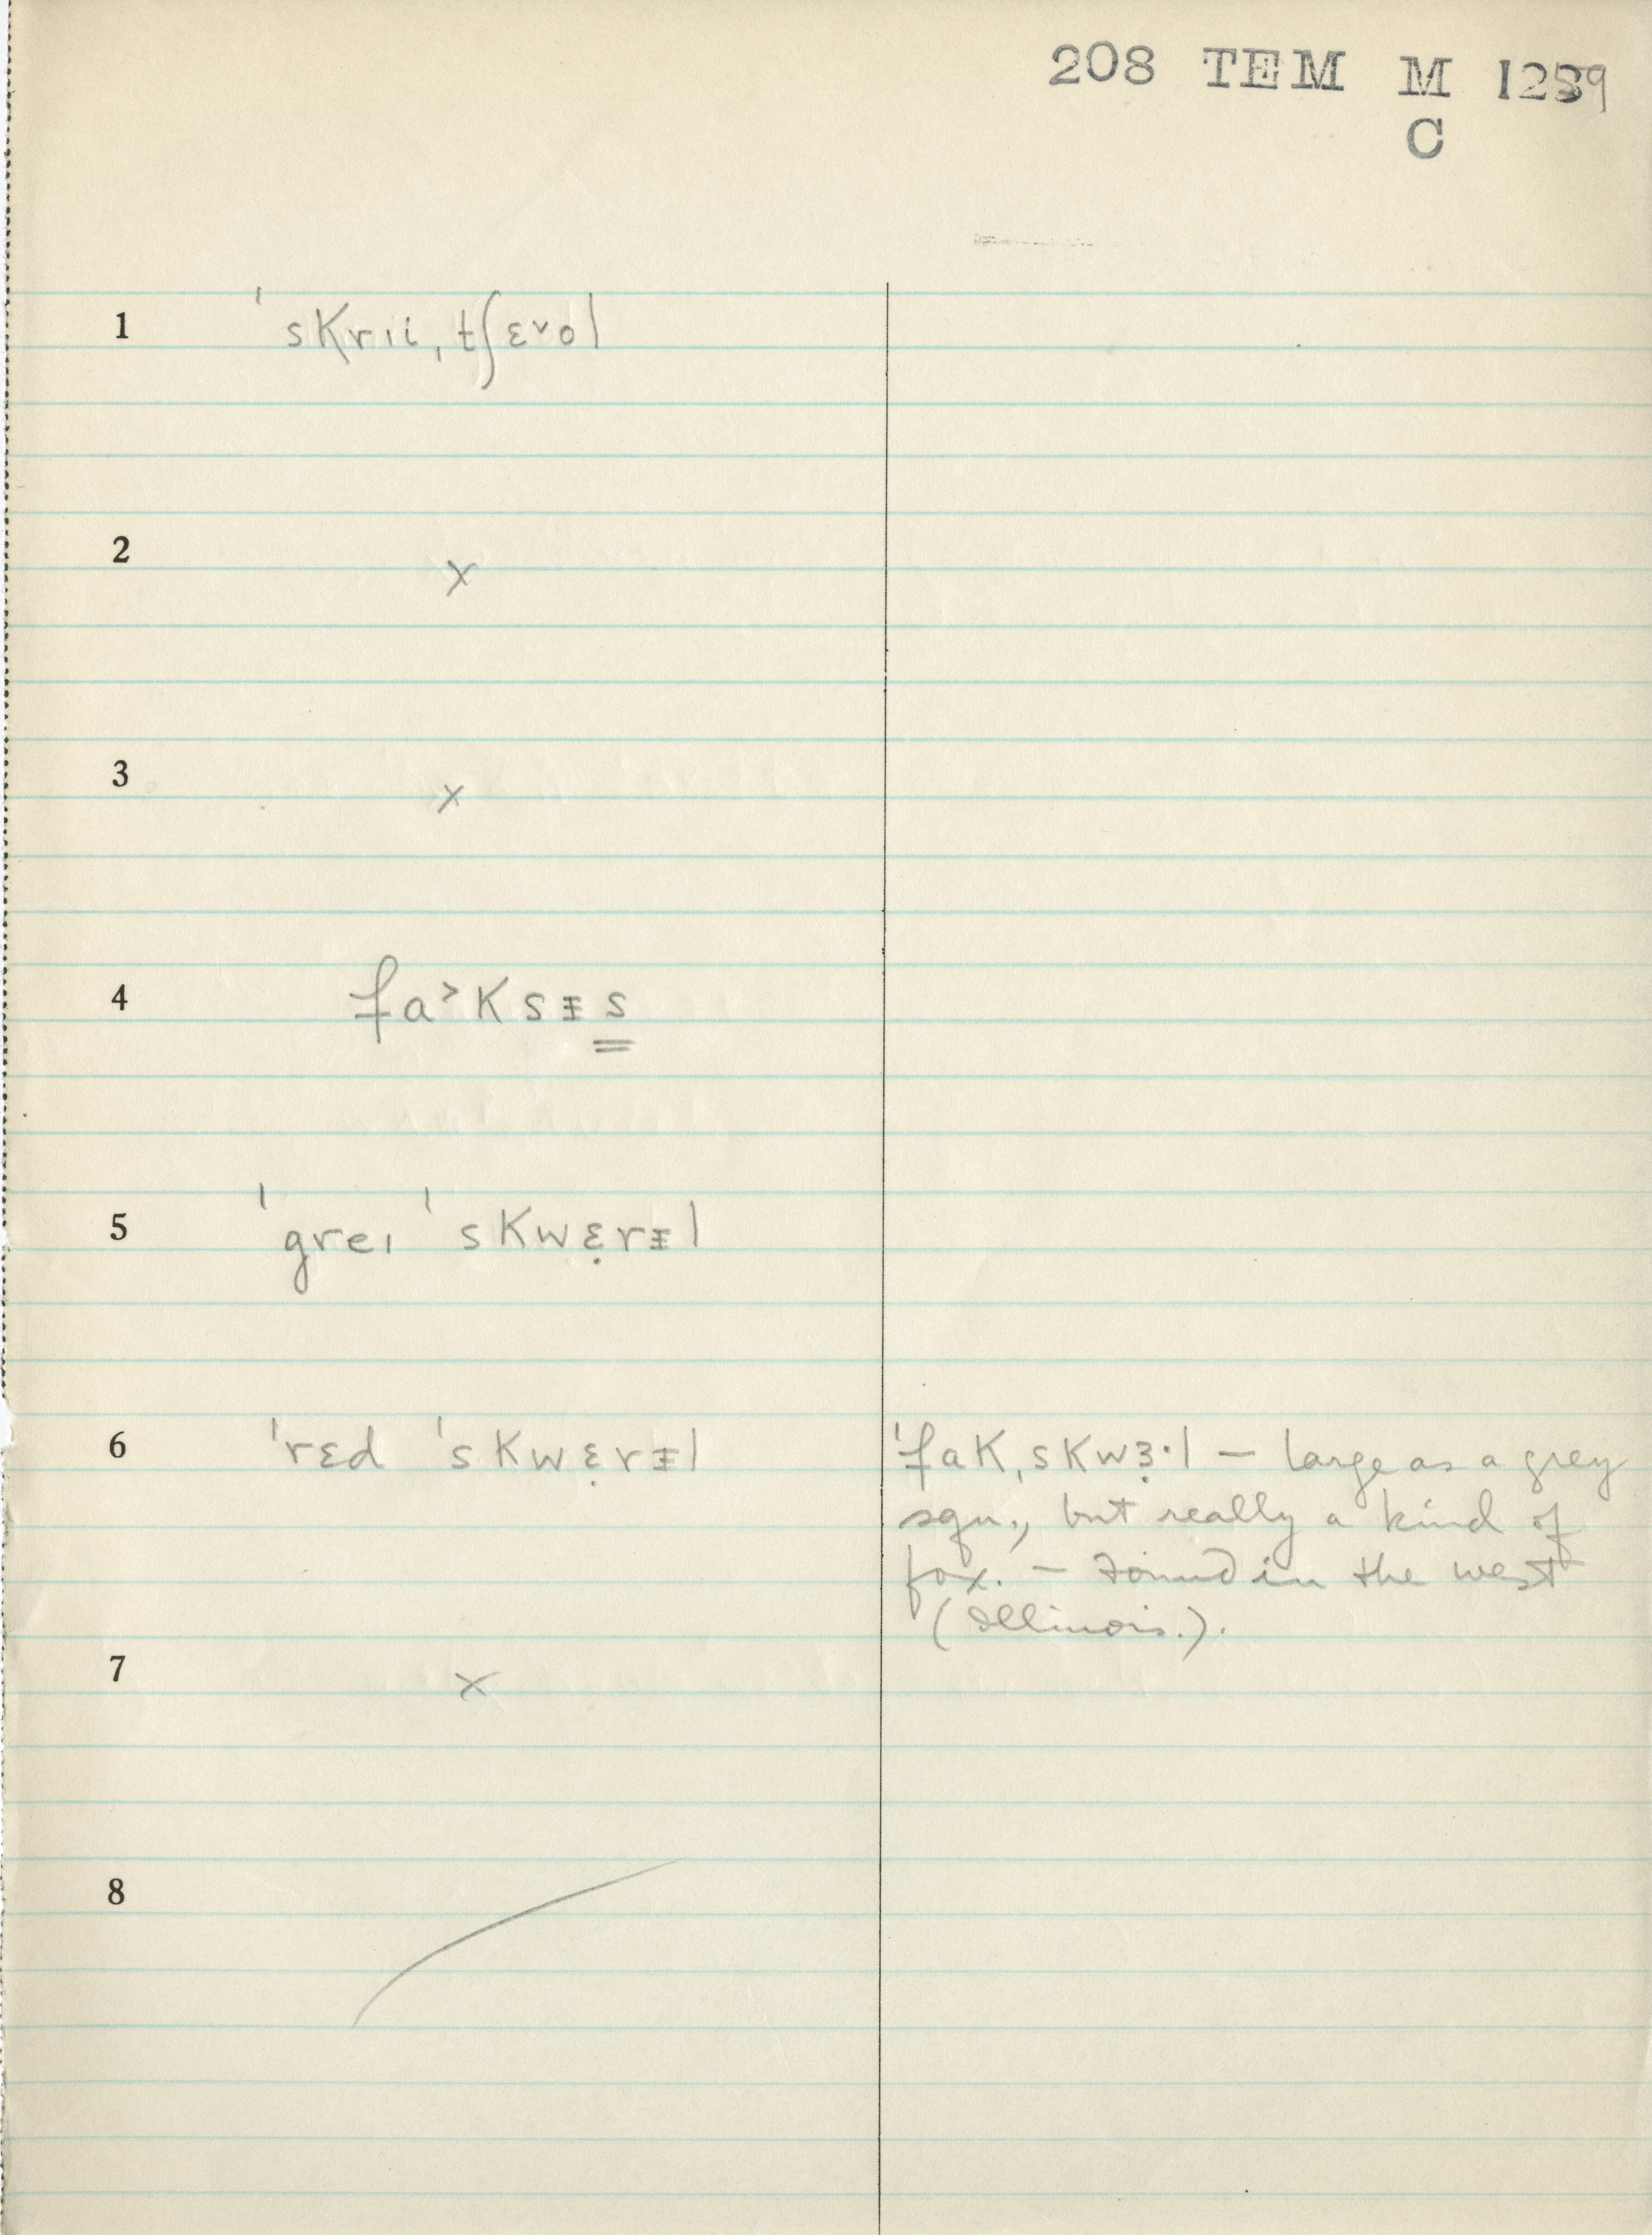 208 TEM M 1239
C
1 ˈskrii,tʃɛ˅ol
2 ×
3 ×
4 fa˃ksᵻs
5 ˈgreɪ ˈskwɛ̣rᵻl
6 ˈrɛd ˈskwɛ̣rᵻl
ˈfak,skwɜ̣·l — large as a grey
squ., but really a kind of
fox. — Found in the west
(Illinois.).
7 ×
8